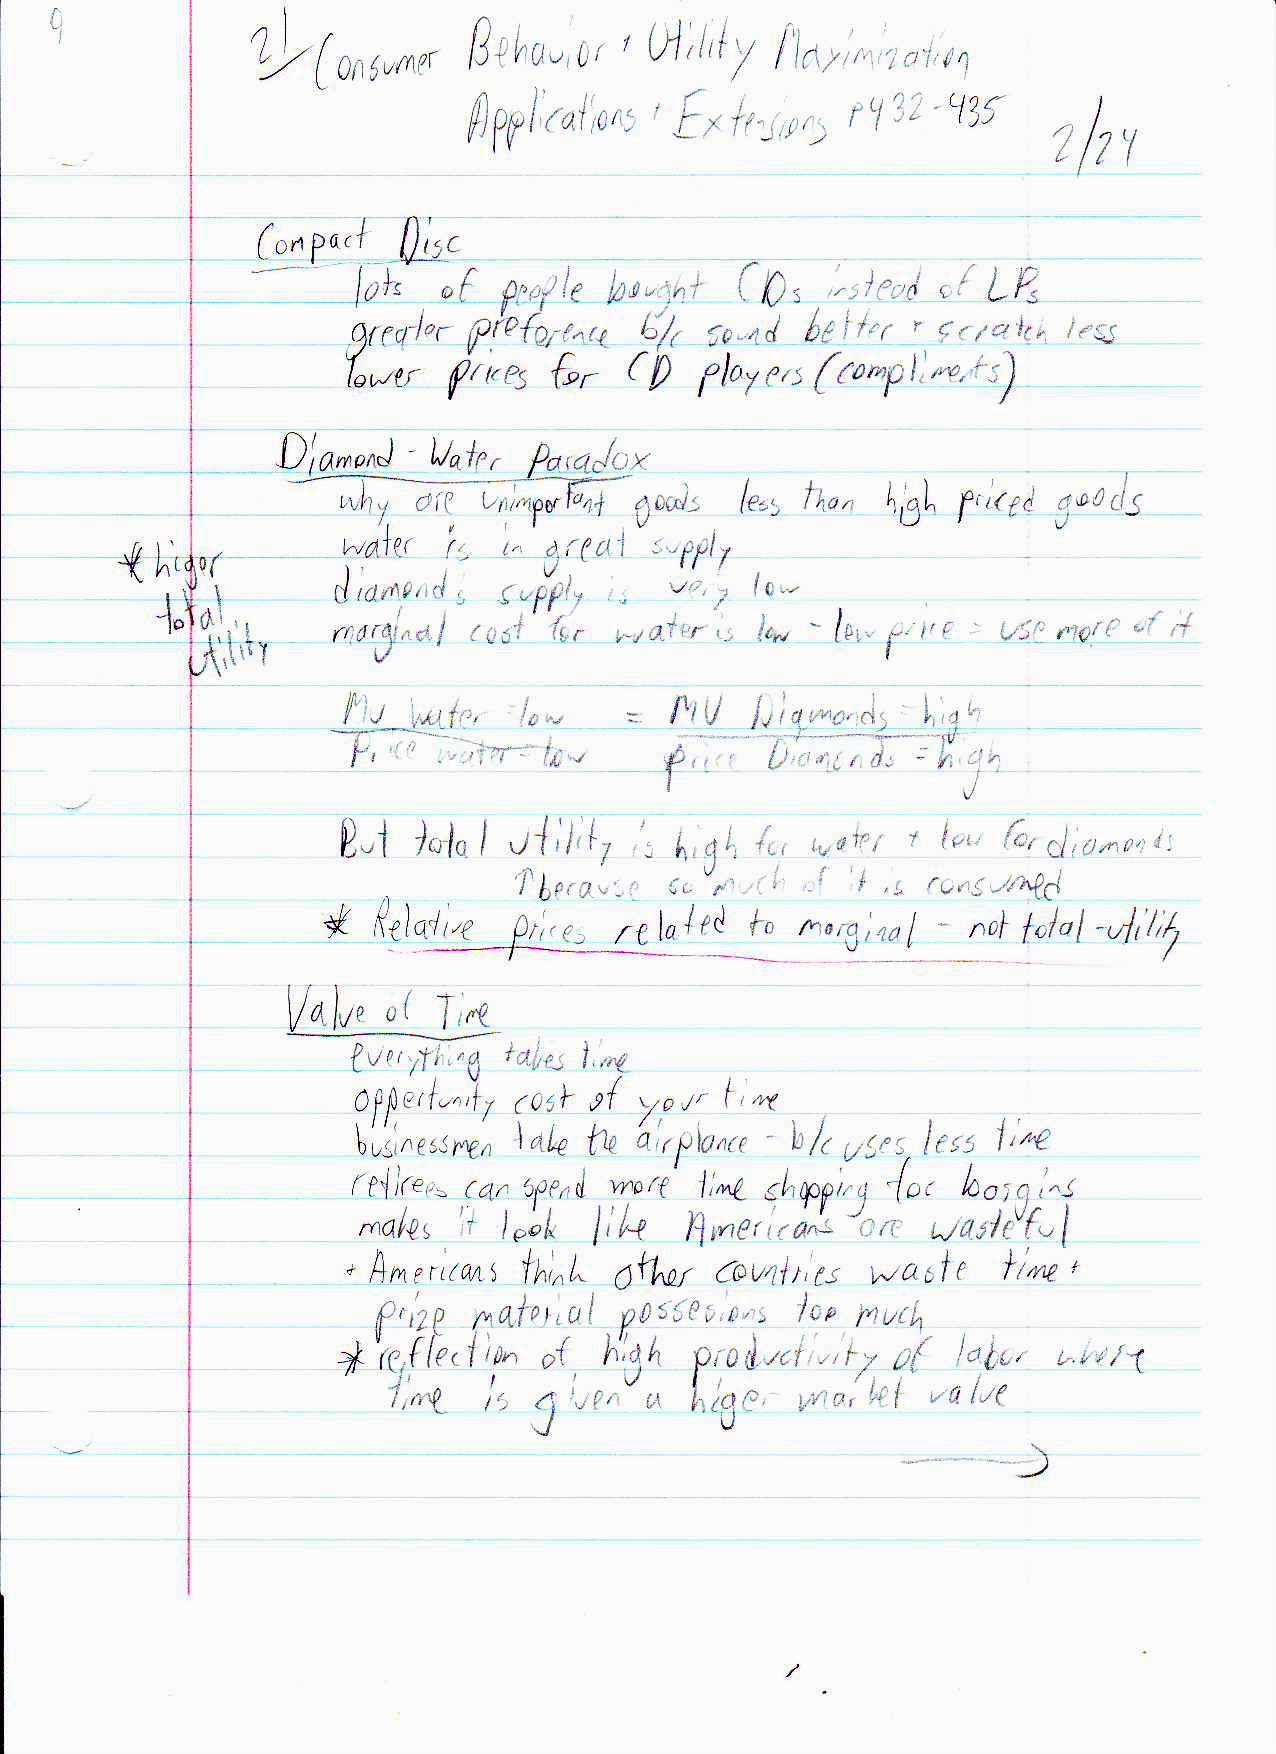 9
21 Consumer Behavior + Utility Maximization
Applications + Extensions P432-435
2/24
Compact Disc
lots of people bought CDs instead of LPs
greater preference b/c sound better + scratch less
lower prices for CD players (compliments)
Diamond-Water Paradox
why are unimportant goods less than high priced goods
water is in great supply
diamond's supply is very low
marginal cost for water is low - low price = use more of it
* higer
total
utility
MU Water = low = MU Diamonds = high
Price water = low price Diamonds = high
But total utility is high for water + low for diamonds
↑ because so much of it is consumed
* Relative prices related to marginal - not total - utility
Value of Time
everything takes time
oppertunity cost of your time
businessmen take the airplance - b/c uses less time
retirees can spend more time shopping for bargins
makes it look like Americans are wasteful
+ Americans think other countries waste time +
prize material possesions too much
* reflection of high productivity of labor where
time is given a higer market value
→